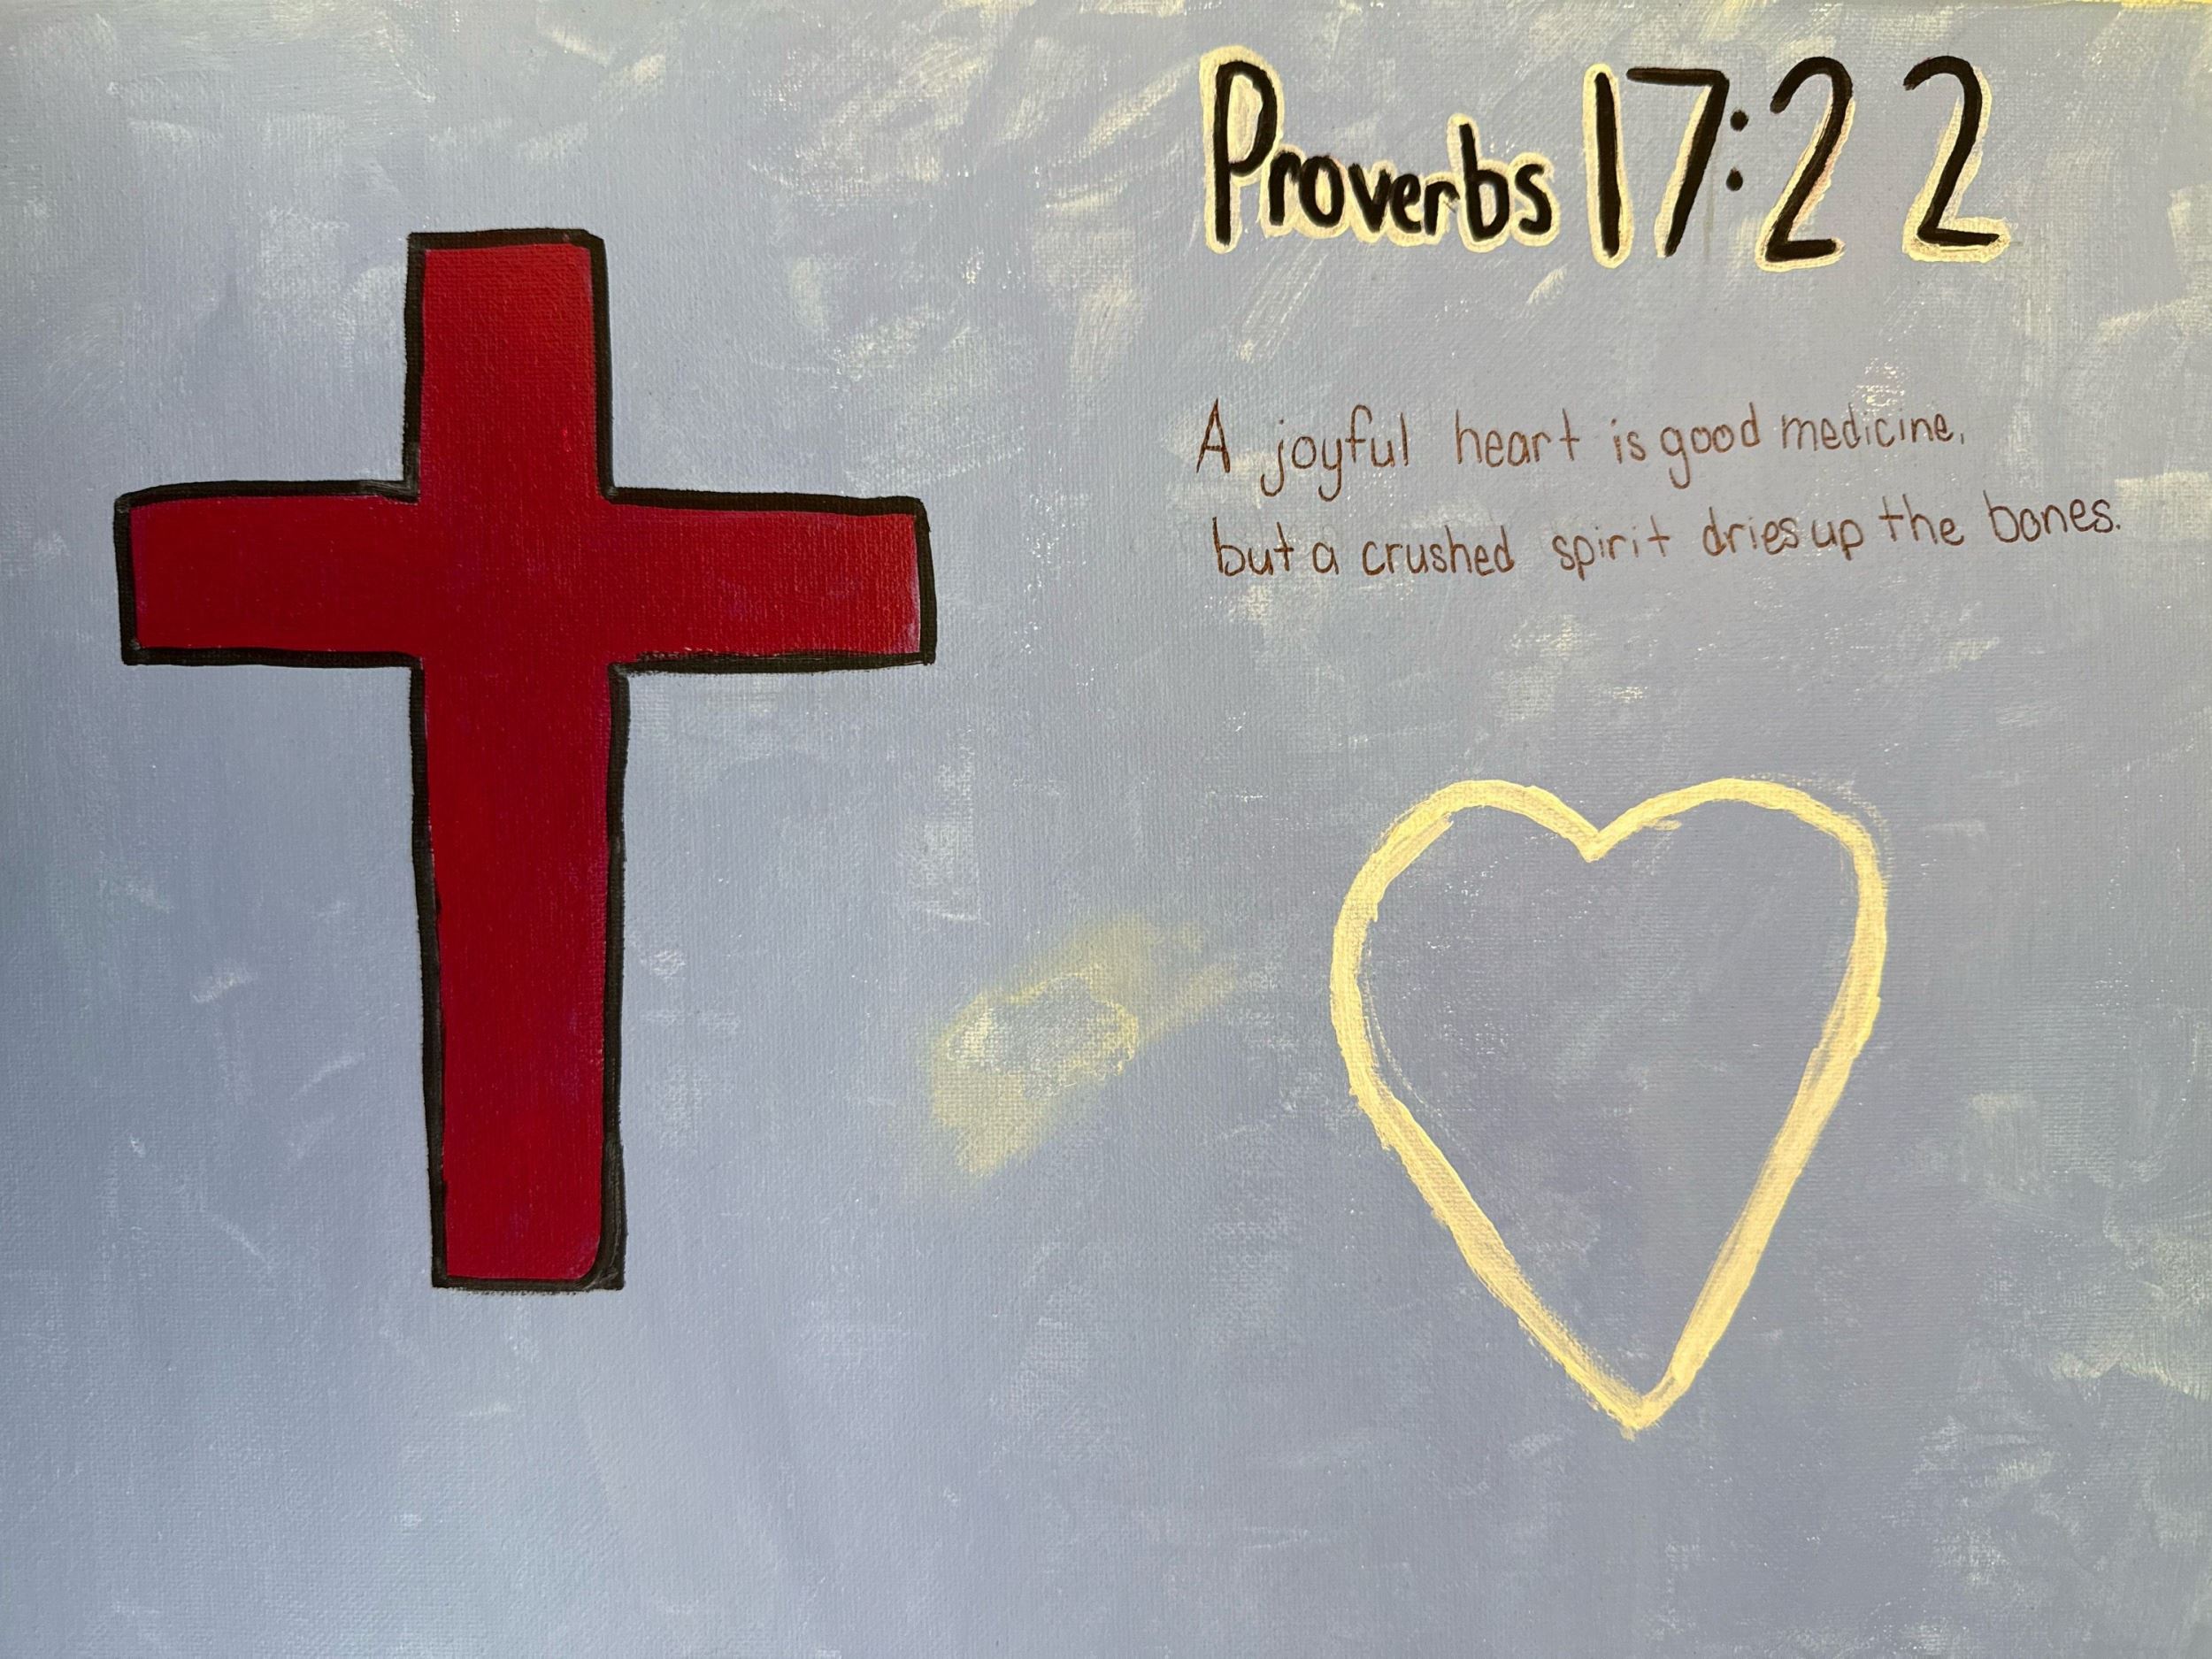 Proverbs 17:22
A joyful heart is good medicine,
but a crushed spirit dries up the bones.